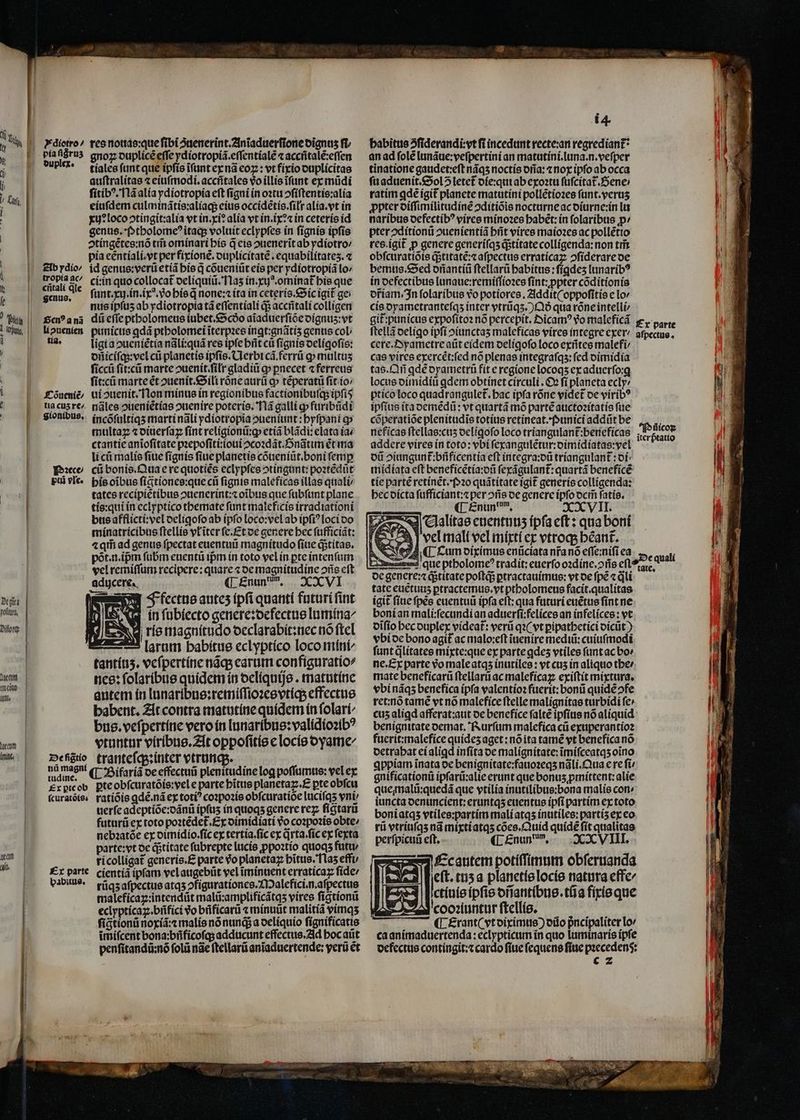 14
res notias:que sibi ↄuenerint. Aniaduersione dignus si⸗
gnoꝝ duplice esse ydiotropiā. essentialē ⁊ accñtalē: essen
tiales sunt que ipsis isunt ex nā eoꝝ: vt fixio duplicitas
australitas ⁊ eiusmodi. accñtales vo illis isunt ex mūdi
sitibꝰ. Nā alia ydiotropia est signi in ortu ↄsistentis: alia
eiusdem culminātis: aliaqꝫ eius occidētis. silr alia. vt in
xijꝰ loco ↄtingit: alia vt in. xiꝰ alia vt in. ixꝰ ⁊ in ceteris id
genus. Ptholomeꝰ itaqꝫ voluit eclypses in signis ipsis
ↄtingētes: nō tm̄ ominari his q̄ eis ↄuenerit ab ydiotro⸗
pia eēntiali. vt per fixionē. duplicitatē. equabilitatēꝫ. ⁊
id genus: verū etiā his q̄ cōueniūt eis per ydiotropiā lo⸗
ci: in quo collocat deliquiū. Nas in. xijꝰ. ominat his que
sunt. xij. in. ixꝰ. vo his q̄ none: ⁊ ita in ceteris. Sic igit ge⸗
nus ipsuꝫ ab ydiotropia tā essentiali q̄ꝫ accñtali colligen
dū esse ptholomeus iubet. Scdo aiaduersiōe dignuꝫ: vt
punicus qdā ptholomei iterpres inqt: gnātis genus col⸗
ligi a ↄueniētia nāli: quā res ipse hñt cū signis deligosis:
dñicisqꝫ: vel cū planetis ipsis. Uerbi cā. ferrū qꝫ multuꝫ
siccū sit: cū marte ↄuenit. silr gladiū qꝫ pnecet ⁊ ferreus
sit: cū marte et ↄuenit. Sili rōne aurū qꝫ tēperatū sit io⸗
ui ↄuenit. Non minus in regionibus factionibusqꝫ ipsis
nāles ↄueniētias ↄuenire poteris. Nā galli qꝫ furibūdi
incōsultiqꝫ marti nāli ydiotropia ↄueniunt: hyspani qꝫ
multaꝝ ⁊ diuersaꝝ sint religionū: qꝫ etiā blādi: elata ia⸗
ctantie aniositate prepositi: ioui ↄcordāt. Gnātim et ma
li cū malis siue signis siue planetis cōueniūt. boni semp
cū bonis. Qua e re quotiēs eclypses ↄtingunt: portēdūt
his oibus fictiones: que cū signis maleficas illas quali⸗
tates recipiētibus ↄuenerint: ⁊ oibus que subsunt plane
tis: qui in eclyptico themate sunt maleficis irradiationi
bus afflicti: vel deligoso ab ipso loco: vel ab ipsiꝰ loci do
minatricibus stellis vltter se. Et de genere hec sufficiāt:
⁊ qm̄ ad genus spectat euentū magnitudo siue q̄titas.
pōt. n. ipm̄ subm̄ euentū ipm̄ in toto vel in pte intensum
vel remissum recipere: quare ⁊ de magnitudine ↄñs est
adijcere. ¶ Enuntᵘᵐ. XXVI
EFfectus auteꝫ ipsi quanti futuri sint
in subiecto genere: defectus lumina⸗
ris magnitudo declarabit: nec nō stel
larum habitus eclyptico loco mini⸗
tantiuꝫ. vespertine nāqꝫ earum configuratio⸗
nes: solaribus quidem in deliquijs. matutine
autem in lunaribus: remissiores vtiqꝫ effectus
habent. At contra matutine quidem in solari⸗
bus. vespertine vero in lunaribus: validioribꝰ
vtuntur viribus. At oppositis e locis dyame⸗
trantesqꝫ: inter vtrunqꝫ.
¶ Bifariā de effectuū plenitudine log possumus: vel ex
pte obscuratōis: vel e parte hitus planetaꝝ. E pte obscu
ratiōis qdē. nā ex totiꝰ corporis obscuratiōe lucisqꝫ vni⸗
uerse adeptiōe: dānū ipsus in quoqꝫ genere reꝝ fictarū
futurū ex toto portēdet. Ex dimidiati vo corporis obte⸗
nebratōe ex dimidio. sic ex tertia. sic ex q̄rta. sic ex sexta
parte: vt de q̄titate subrepte lucis ꝓportio quoqꝫ futu⸗
ri colligat generis. E parte vo planetaꝝ hitus. Nas effi⸗
cientiā ipsam vel augebūt vel iminuent erraticaꝝ side⸗
rūqꝫ aspectus atqꝫ ↄfigurationes. Malefici. n. aspectus
maleficaꝝ: intendūt malū: amplificātqꝫ vires fictionū
eclypticaꝝ. bñfici vo bñficarū ⁊ minuūt malitiā vimqꝫ
fictionū noxiā: ⁊ malis nō nunqꝫ a deliquio significatis
imiscent bona: bñficosqꝫ adducunt effectus. Ad hoc aūt
pensitandū: nō solū nāe stellarū aniaduertende: verū et
ydiotro⸗
pia signorus
duplex.
Ab ydio⸗
tropia ac⸗
cñtali qle
genus.
Genꝰ a nā
li ↄuenien
tia.
Cōueniē⸗
tia cuꝫ re⸗
gionibus.
De fictio
nū magni
tudine.
Ex pte ob
scuratōis.
Ex parte
habitus.
habitus ↄsiderandi: vt si incedunt recte: an regrediant:
an ad solē lunāue: vespertini an matutini. luna. n. vesper
tinatione gaudet: est nāqꝫ noctis dña: ⁊ nox ipso ab occa
su aduenit. Sol ↄ letet die: qui ab exortu suscitat. Gene⸗
ratim qdē igit planete matutini pollētiores sunt. verus
ꝓpter dissimilitudinē ↄditiōis nocturne ac diurne: in lu
naribus defectibꝰ vires minores habēt: in solaribus ꝓ⸗
pter ↄditionū ↄuenientiā hñt vires maiores ac pollētio
res. igit ꝓ genere generisqꝫ q̄titate colligenda: non tm̄
obscuratiōis q̄titatē: ⁊ aspectus erraticaꝝ ↄsiderare de
bemus. Sed dñantiū stellarū habitus: siqdeꝫ lunaribꝰ
in defectibus lunaue: remissiores sint: ꝓpter cōditionis
driam. In solaribus vo potiores. Addit(oppositis e lo⸗
cis dyametrantesqꝫ inter vtrūqꝫ.) Quō qua rōne intelli⸗
git: punicus expositor nō percepit. Dicamꝰ vo maleficā
stellā deligo ipsi ↄiunctaꝫ maleficas vires integre exer⸗
cere. Dyametre aūt eidem deligoso loco existēs malefi⸗
cas vires exercēt: sed nō plenas integrasqꝫ: sed dimidia
tas. Qm̄ qdē dyametrū sit e regione locoqꝫ ex aduerso: q
locus dimidiū qdem obtinet circuli. Qꝫ si planeta ecly⸗
ptico loco quadrangulet. hac ipsa rōne videt de viribꝰ
ipsius ita demēdū: vt quartā mō partē auctoritatis sue
cōperatiōe plenitudis totius retineat. Punici addūt be
neficas stellas: cuꝫ deligoso loco triangulant: beneficas
addere vires in toto: vbi sexangulētur: dimidiatas: vel
dū ↄiungunt: bñficentia est integra: dū triangulant: di⸗
midiata est beneficētia: dū sexāgulant: quartā beneficē
tie partē retinēt. Pro quātitate igit generis colligenda:
hec dicta sufficiant: ⁊ per ↄñs de genere ipso dem̄ satis.
¶ Enuntᵘᵐ. XXVII.
QUalitas euentuuꝫ ipsa est: qua boni
vel mali vel mixti ex vtroqꝫ hēant.
¶ Cum diximus enūciata nra nō esse: nisi ea
que ptholomeꝰ tradit: euerso ordine. ↄñs est
de genere: ⁊ q̄titate postqꝫ ptractauimus: vt de spe ⁊ q̄li
tate euētuuꝫ ptractemus. vt ptholomeus facit. qualitas
igit siue spes euentuū ipsa est: qua futuri euētus sint ne
boni an mali: secundi an aduersi: felices an infelices: vt
diffio hec duplex videat: verū qꝫ(vt pipathetici dicūt)
vbi de bono agit ac malo: est inuenire mediū: cuiusmodi
sunt q̄litates mixte: que ex parte qdeꝫ vtiles sunt ac bo⸗
ne. Ex parte vo male atqꝫ inutiles: vt cuꝫ in aliquo the⸗
mate beneficarū stellarū ac maleficaꝝ existit mixtura.
vbi nāqꝫ benefica ipsa valentior fuerit: bonū quidē ↄfe
ret: nō tamē vt nō malefice stelle malignitas turbidi se⸗
cuꝫ aliqd afferat: aut de benefice saltē ipsius nō aliquid
benignitate demat. Rursum malefica cū exuperantior
fuerit: malefice quideꝫ aget: nō ita tamē vt benefica nō
detrahat ei aliqd insita de malignitate: imisceatqꝫ oino
qppiam inata de benignitate: fauoreqꝫ nāli. Qua e re si⸗
gnificationū ipsarū: alie erunt que bonuꝫ ꝓmittent: alie
que malū: quedā que vtilia inutilibus: bona malis con⸗
iuncta denuncient: eruntqꝫ euentus ipsi partim ex toto
boni atqꝫ vtiles: partim mali atqꝫ inutiles: partis ex eo
rū vtriusqꝫ nā mixti atqꝫ cōes. Quid quidē sit qualitas
perspicuū est. ¶ Enuntᵘᵐ. XXVIII.
HEc autem potissimum obseruanda
est. tuꝫ a planetis locis natura effe⸗
ctiuis ipsis dñantibus. tū a fixis que
cooriuntur stellis.
¶ Erant(vt diximus) dūo prīncipaliter lo⸗
ca animaduertenda: eclypticum in quo luminaris ipse
defectus contingit: ⁊ cardo siue sequens siue precedenꝫ:
Ex parte
aspectus.
Punicoꝝ
iterpretatio
De quali
tate.
c 2